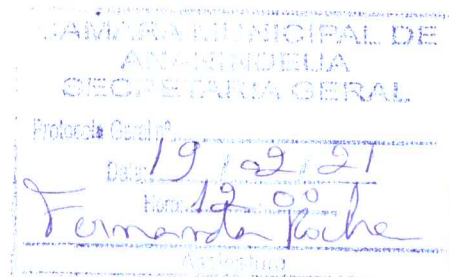 CAMARA MUNICIPAL DE
ANANINDEUA
SECRETARIA GERAL
Protocolo Geral nº
Data: 19 / 02 / 21
Hora: 12:00
Fernanda Rocha
Assinatura